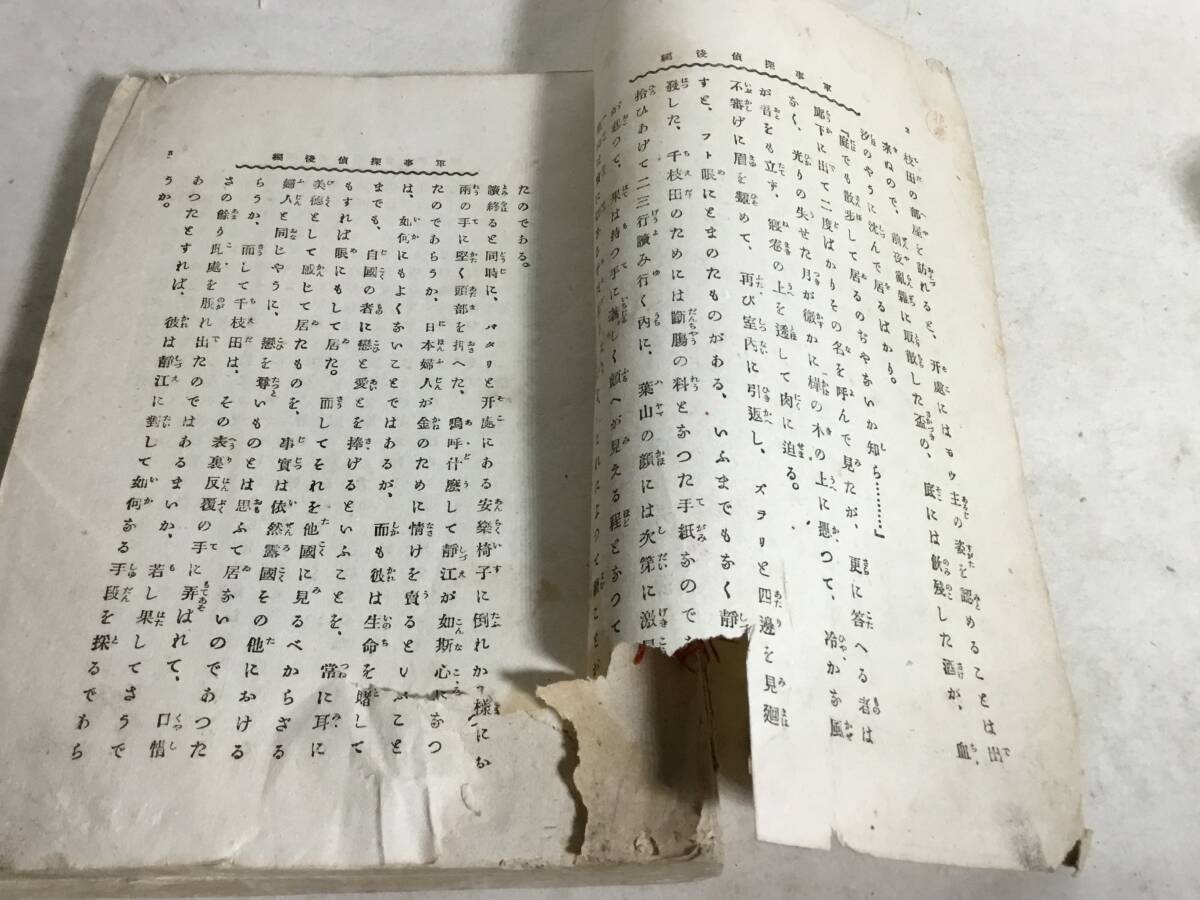 軍事探偵後編
2
枝田の部屋を訪れると、开處にはモウ主の姿を認めることは出
來ぬので、前夜亂雜に取散した盃の、底には飮殘した酒が、血
汐のやうに沈んで居るばかり。
『庭でも散步して居るのぢやないか知ら………』
廊下に出て二度ばかりその名を呼んで見たが、更に答へる者は
なく、光りの失せた月が微かに樺の木の上に懸つて、冷かな風
が音をも立ず、寢卷の上を透して肉に迫る。
不審げに眉を顰めて、再び室內に引返し、ズラリと四邊を見廻
すと、フト眼にとまのたものがある、いふまでもなく靜
發した、千枝田のためには斷膓の料となつた手紙なので
拾ひあげて二三行讀み行く內に、葉山の顏には次第に激
つて、果は持つ手に著しく顫へが見える程となつて
軍事探偵後編
3
たのである。
讀終ると同時に、バタリと开處にある安樂椅子に倒れかゝ樣にか
兩の手に堅く頭部を抑へた、嗚呼什麽して靜江が如斯心になつ
たのであらうか、日本婦人が金のために情けを賣るといふこと
は、如何にもよくないことではあるが、而も彼は生命を賭して
までも、自國の者に戀と愛とを捧げるといふことを、常に耳に
もすれば眼にもして居た。而してそれを他國に見るべからざる
美德として感じて居たものを、事實は依然露國その他における
婦人と同じやうに、戀を尊いものとは思ふて居ないのであつた
らうか、而して千枝田は、その表裏反覆の手に弄ばれて、口惜
さの餘り此處を脫れ出たのではあるまいか、若し果してさうで
あつたとすれば、彼は靜江に對して如何なる手段を探るであら
うか。